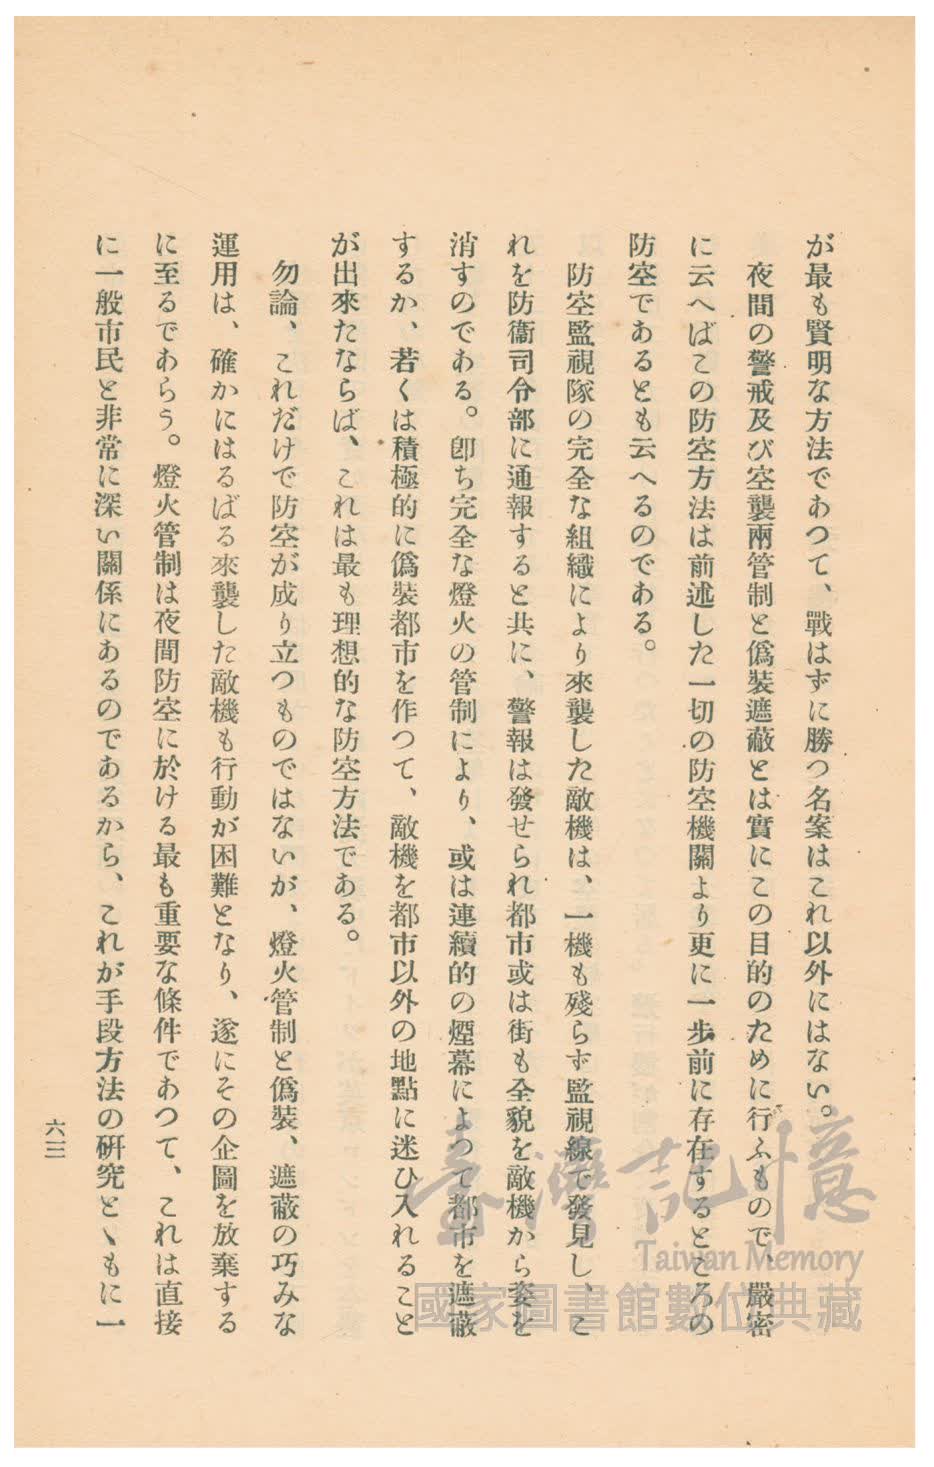 が最も賢明な方法であつて、戰はずに勝つ名案はこれ以外にはない。
夜間の警戒及び空襲兩管制と僞裝遮蔽とは實にこの目的のために行ふもので、嚴密
に云へばこの防空方法は前述した一切の防空機關より更に一步前に存在するところの
防空であるとも云へるのである。
防空監視隊の完全な組織により來襲した敵機は、一機も殘らず監視線で發見し、こ
れを防衞司令部に通報すると共に、警報は發せられ都市或は街も全貌を敵機から姿を
消すのである。卽ち完全な燈火の管制により、或は連續的の煙幕によつて都市を遮蔽
するか、若くは積極的に僞裝都市を作つて、敵機を都市以外の地點に迷ひ入れること
が出來たならば、これは最も理想的な防空方法である。
勿論、これだけで防空が成り立つものではないが、燈火管制と僞裝、遮蔽の巧みな
運用は、確かにはるばる來襲した敵機も行動が困難となり、遂にその企圖を放棄する
に至るであらう。燈火管制は夜間防空に於ける最も重要な條件であつて、これは直接
に一般市民と非常に深い關係にあるのであるから、これが手段方法の硏究とゝもに一
六三
臺灣記憶
Taiwan Memory
國家圖書館數位典藏